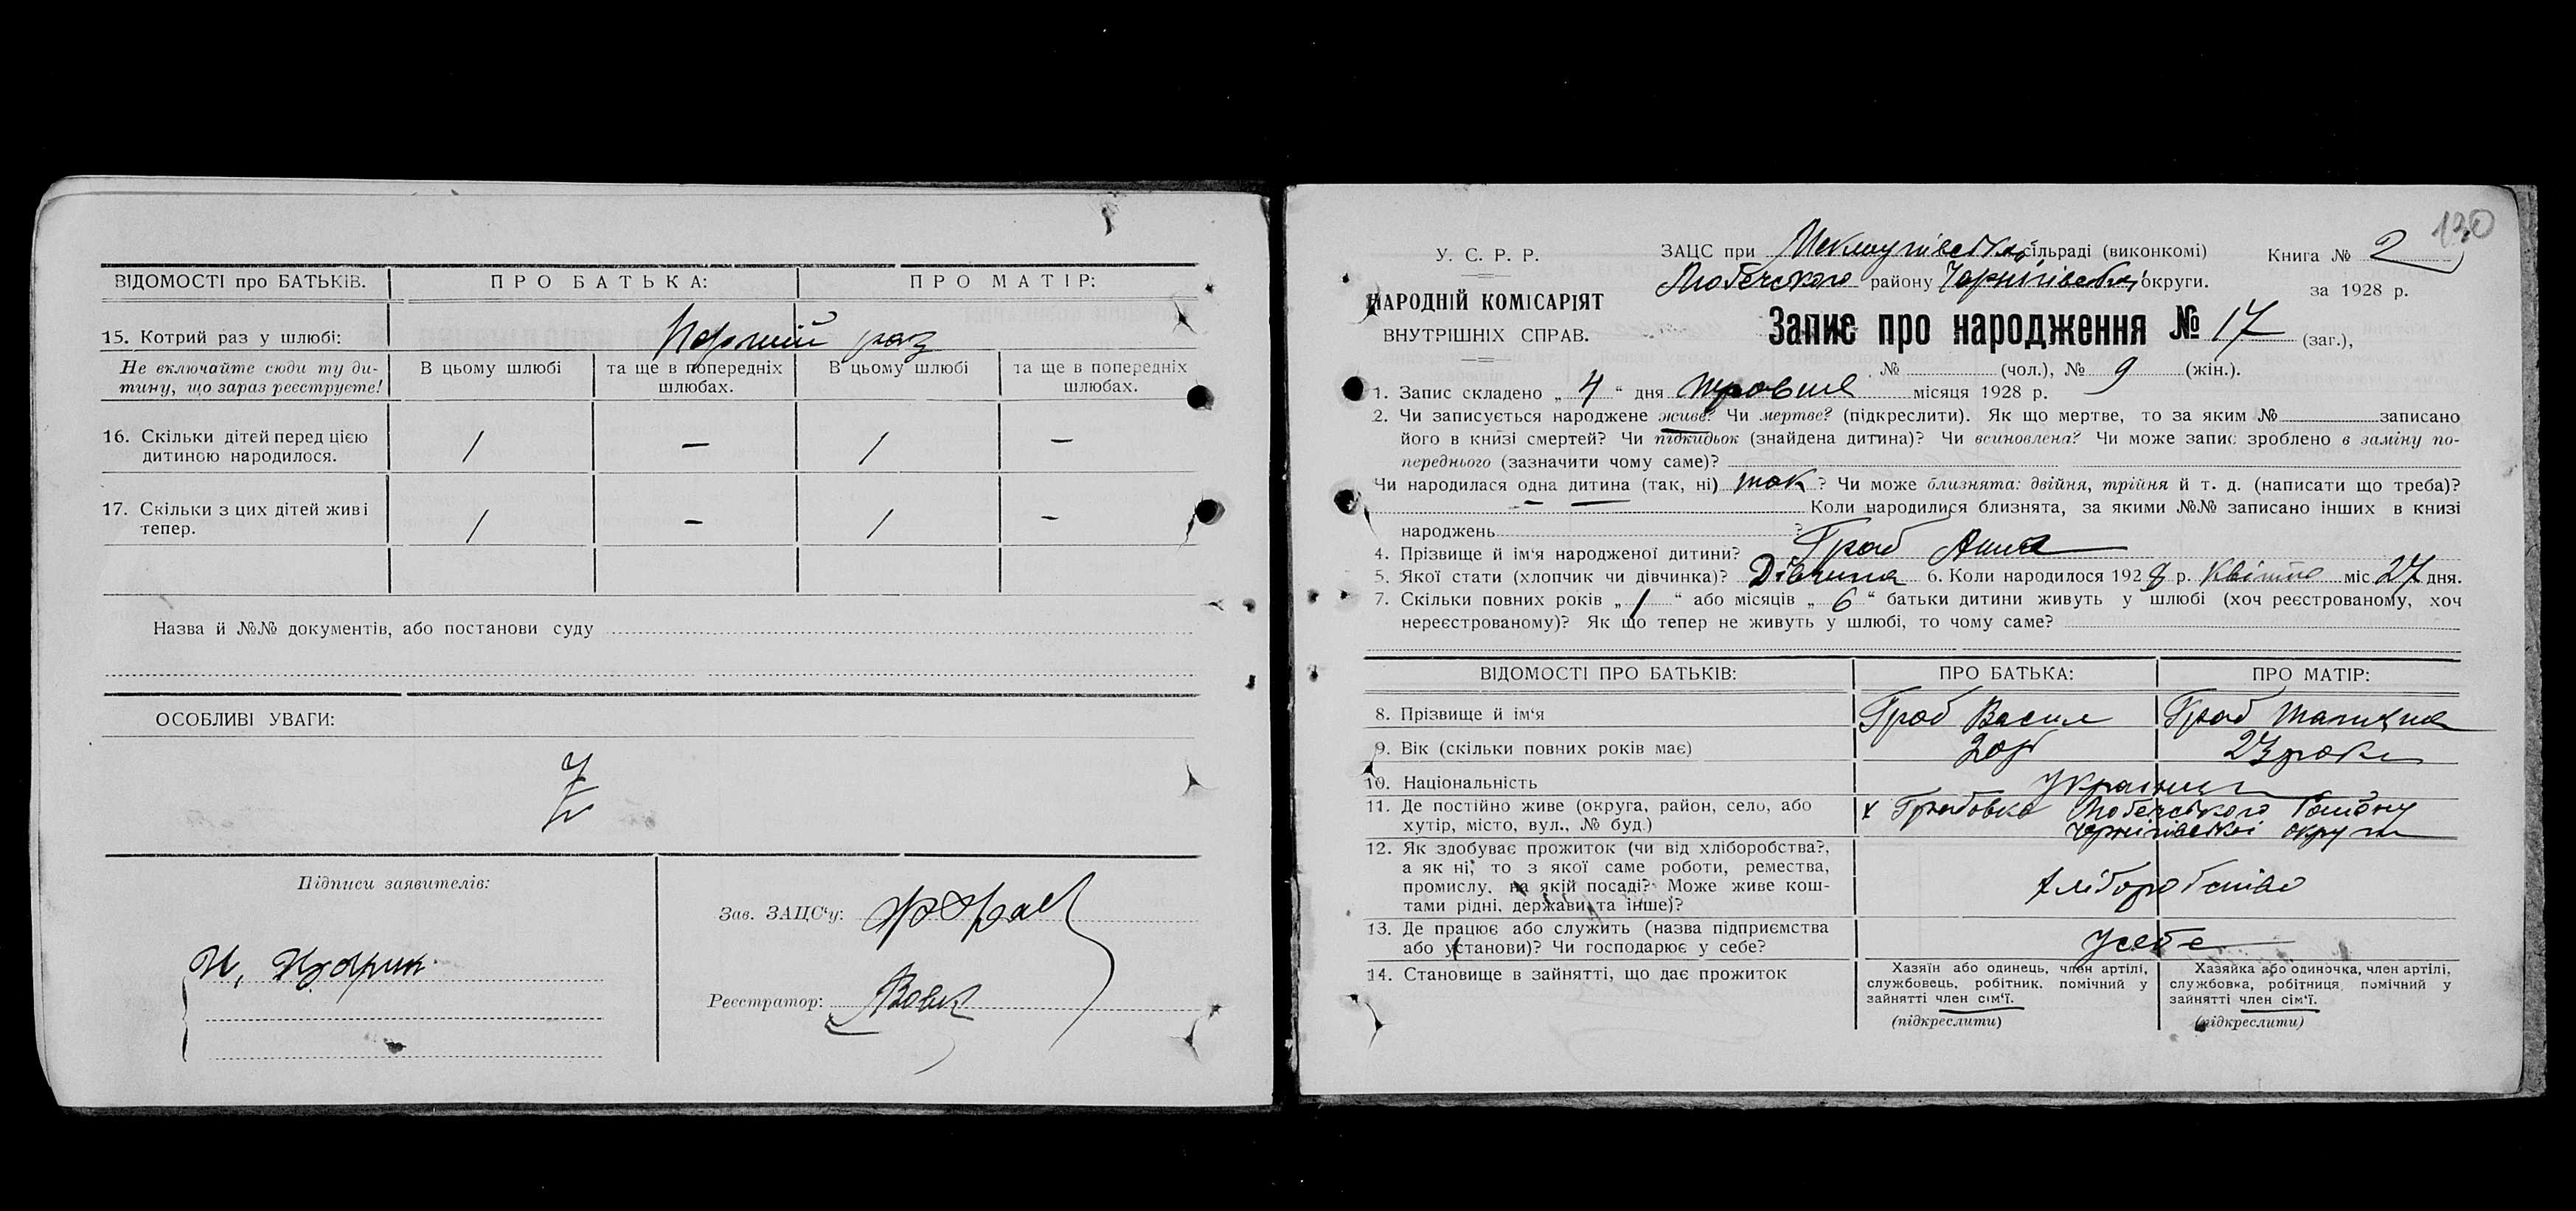 ВІДОМОСТІ про БАТЬКІВ. ПРО БАТЬКА: ПРО МАТІР:
15. Котрий раз у шлюбі: Перший раз
Не включайте сюди ту ди-
тину, що зараз реєструєте!
В цьому шлюбі
та ще в попередніх
шлюбах.
В цьому шлюбі
та ще в попередніх
шлюбах.
16. Скільки дітей перед цією
дитиною народилося. / — / —
17. Скільки з цих дітей живі
тепер. / — / —
Назва й №№ документів, або постанови суду
ОСОБЛИВІ УВАГИ:
Підписи заявителів:
Зав. ЗАЦС'у:
Реєстратор:
130
У. С. Р. Р.
НАРОДНІЙ КОМІСАРІЯТ
ВНУТРІШНІХ СПРАВ.
ЗАЦС при сільраді (виконкомі)
Любечского району Чернігівської округи.
Книга № 2
за 1928 р.
Запис про народження № 17 (заг.),
№ (чол.), № 9 (жін.).
1. Запис складено „ 4 “ дня травня місяця 1928 р.
2. Чи записується народжене живе? Чи мертве? (підкреслити). Як що мертве, то за яким № записано
його в книзі смертей? Чи підкидьок (знайдена дитина)? Чи всиновлена? Чи може запис зроблено в заміну по-
переднього (зазначити чому саме)?
Чи народилася одна дитина (так, ні) так ? Чи може близнята: двійня, трійня й т. д. (написати що треба)?
— — Коли народилися близнята, за якими №№ записано інших в книзі
народжень ?
4. Прізвище й ім'я народженої дитини? Граб Анна
5. Якої стати (хлопчик чи дівчинка)? Дівчина 6. Коли народилося 1928 р. Квітня міс 27 дня.
7. Скільки повних років „ 1 “ або місяців „ 6 “ батьки дитини живуть у шлюбі (хоч реєстрованому, хоч
нереєстрованому)? Як що тепер не живуть у шлюбі, то чому саме?
ВІДОМОСТІ ПРО БАТЬКІВ: ПРО БАТЬКА: ПРО МАТІР:
8. Прізвище й ім'я Граб Васил Граб
9. Вік (скільки повних років має) 20 р 23 роки
10. Національність Українці
11. Де постійно живе (округа, район, село, або
хутір, місто, вул., № буд.)
х Грабовка Любечського Району
Чернігівської округи
12. Як здобуває прожиток (чи від хліборобства?,
а як ні, то з якої саме роботи, ремества,
промислу, на якій посаді? Може живе кош-
тами рідні, держави та інше)?
хліборобство
13. Де працює або служить (назва підприємства
або установи)? Чи господарює у себе?
У себе
14. Становище в зайнятті, що дає прожиток
Хазяїн або одинець, член артілі,
службовець, робітник, помічний у
зайнятті член сім'ї.
(підкреслити)
Хазяйка або одиночка, член артілі,
службовка, робітниця помічний у
зайнятті член сім'ї.
(підкреслити)